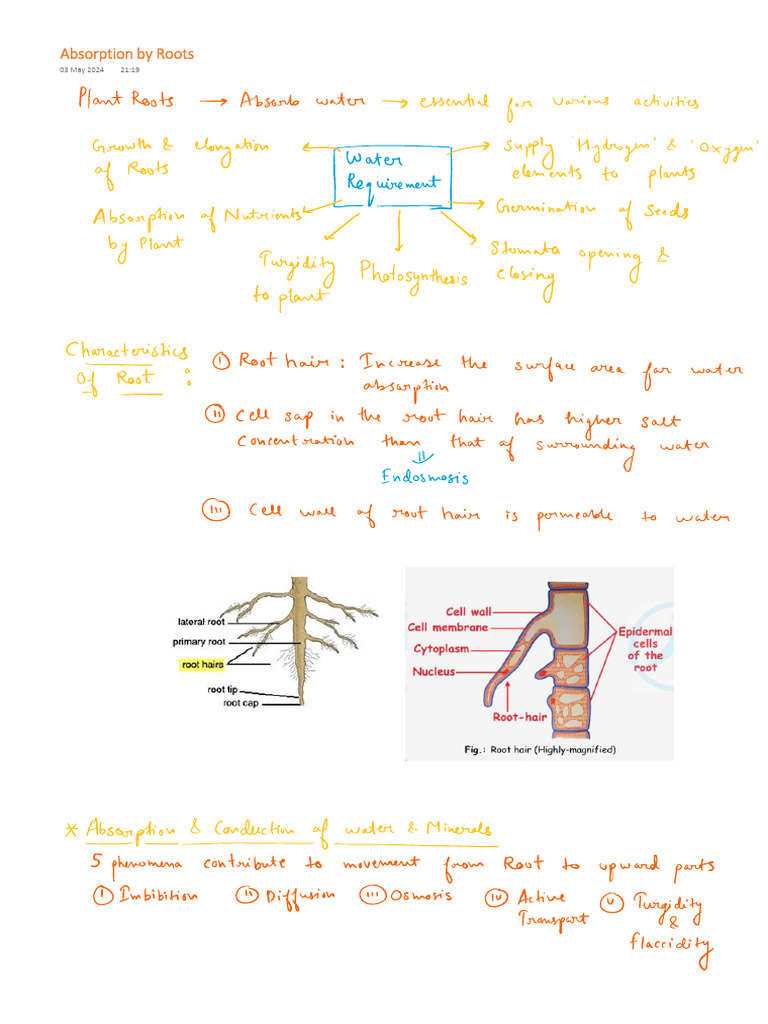 Absorption by Roots
03 May 2024 21:19
Plant Roots → Absorb water → essential for various activities
Growth & elongation
of Roots
Water
Requirement
Supply 'Hydrogen' & 'Oxygen'
elements to plants
Absorption of Nutrients
by Plant
Germination of Seeds
Turgidity
to plant
Photosynthesis
Stomata opening &
closing
Characteristics
Of Root :
(i) Root hair : Increase the surface area for water
absorption
(ii) Cell sap in the root hair has higher salt
concentration than that of surrounding water
⇓
Endosmosis
(iii) Cell wall of root hair is permeable to water
lateral root
primary root
root hairs
root tip
root cap
Cell wall
Cell membrane
Cytoplasm
Nucleus
Root-hair
Epidermal
cells
of the
root
Fig.: Root hair (Highly-magnified)
* Absorption & Conduction of water & Minerals
5 phenomena contribute to movement from Root to upward parts
(i) Imbibition (ii) Diffusion (iii) Osmosis (iv) Active
Transport
(v) Turgidity
&
flaccidity